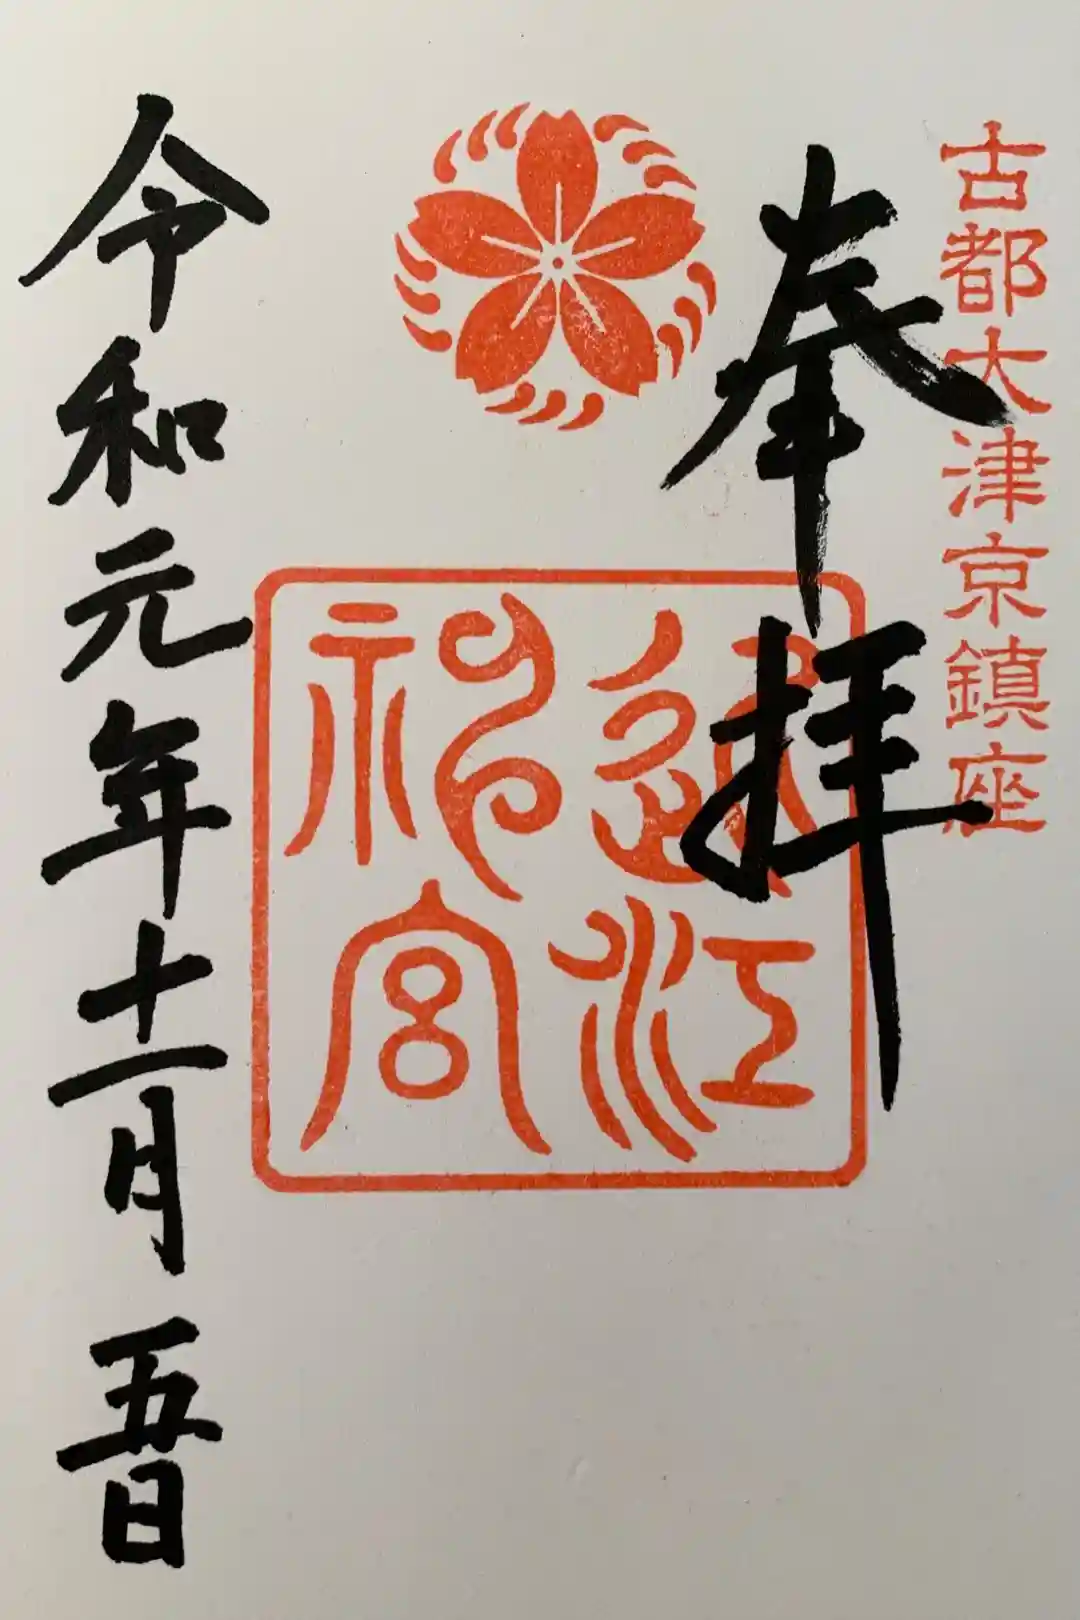 古都大津京鎮座
奉拝
近江
神宮
令和元年十一月五日